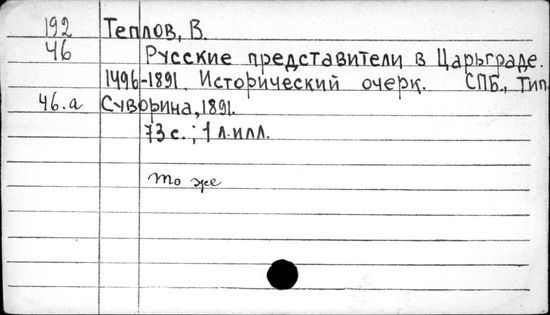 192 Теплов, В.
46 Русские представители в Царьграде.
1496-1891. Исторический очерк. СПБ., Тип.
46.а Суворина, 1891.
73 с.; 1 л. илл.
то же